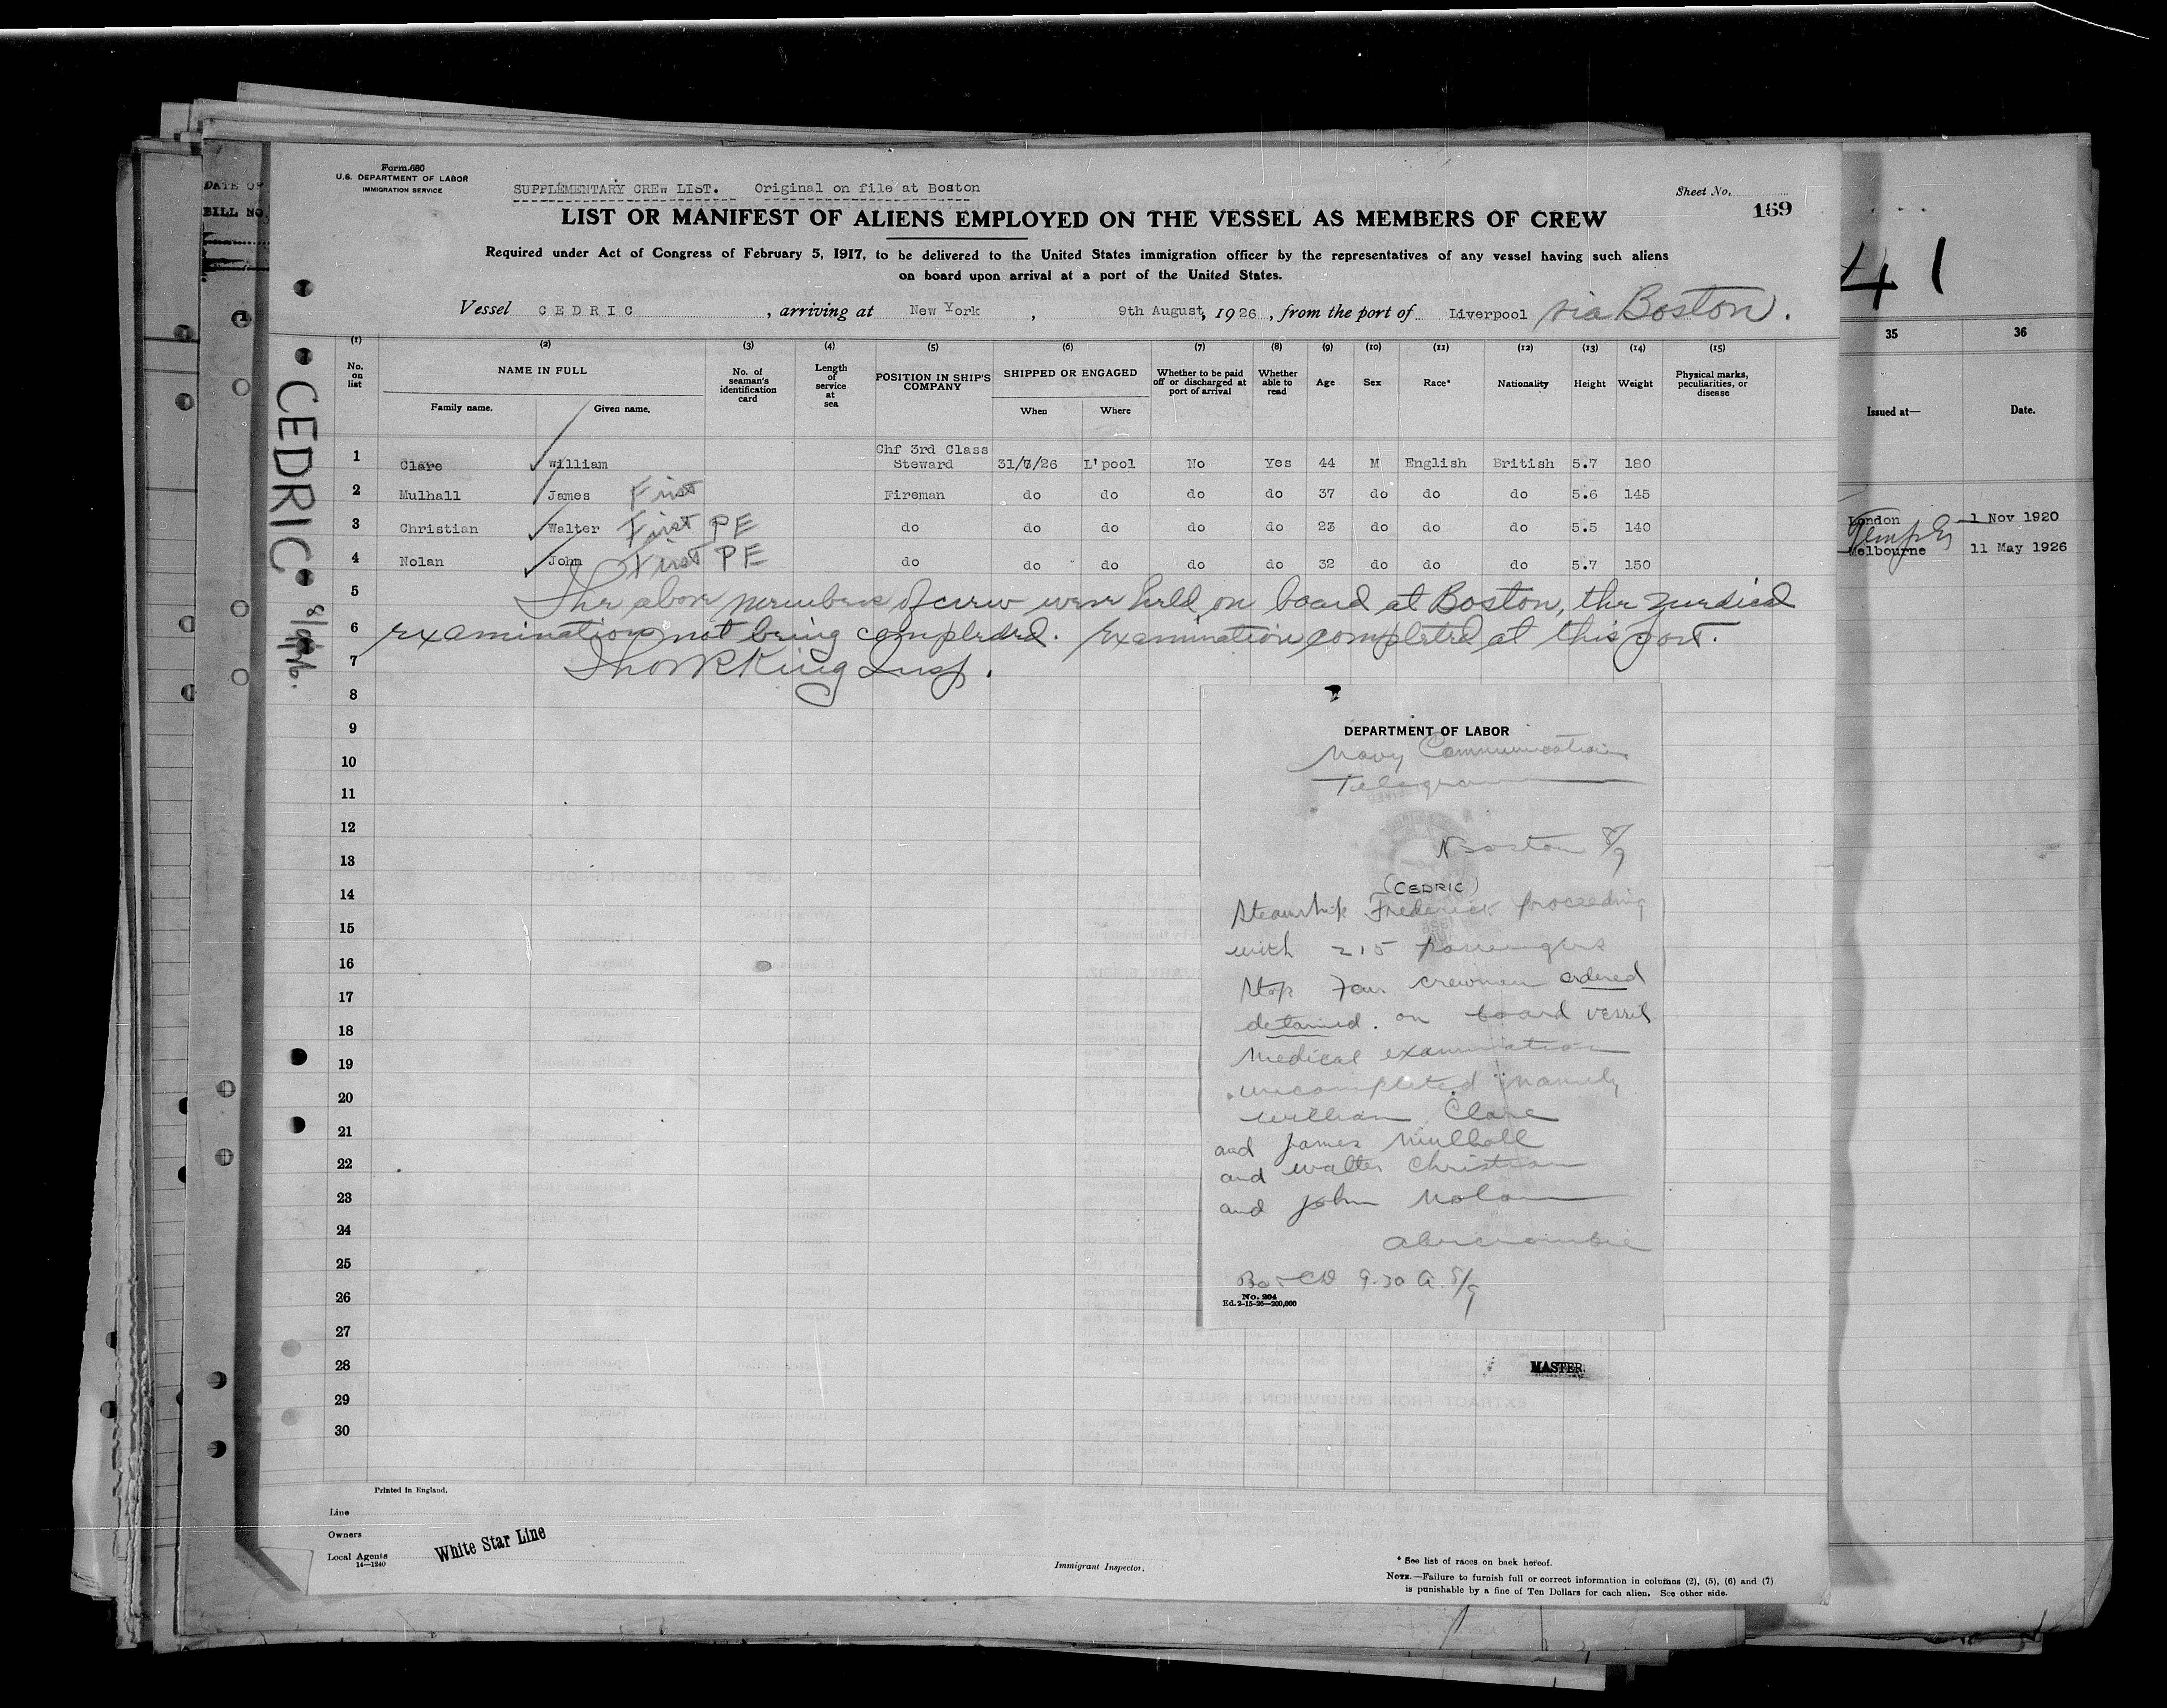 DATE OF
BILL NO.
Form 680
U.S. DEPARTMENT OF LABOR
IMMIGRATION SERVICE
SUPPLEMENTARY CREW LIST. Original on file at Boston
Sheet No.
169
LIST OR MANIFEST OF ALIENS EMPLOYED ON THE VESSEL AS MEMBERS OF CREW
Required under Act of Congress of February 5, 1917, to be delivered to the United States immigration officer by the representatives of any vessel having such aliens
on board upon arrival at a port of the United States.
Vessel CEDRIC, arriving at New York, 9th August, 1926, from the port of Liverpool via Boston.
(1) (2) (3) (4) (5) (6) (7) (8) (9) (10) (11) (12) (13) (14) (15)
No. on list NAME IN FULL Family name. Given name. No. of seaman's identification card Length of service at sea POSITION IN SHIP'S COMPANY SHIPPED OR ENGAGED When Where Whether to be paid off or discharged at port of arrival Whether able to read Age Sex Race* Nationality Height Weight Physical marks, peculiarities, or disease
1 Clare William Chf 3rd Class Steward 31/7/26 L'pool No Yes 44 M English British 5.7 180
2 Mulhall James First Fireman do do do do 37 do do do 5.6 145
3 Christian Walter First PE do do do do do 23 do do do 5.5 140
4 Nolan John First PE do do do do do 32 do do do 5.7 150
5 The above members of crew were held on board at Boston, the medical
6 examination not being completed. Examination completed at this port.
7 King Insp.
8
9
10
11
12
13
14
15
16
17
18
19
20
21
22
23
24
25
26
27
28
29
30
CEDRIC
DEPARTMENT OF LABOR
Navy Communication
Telegram
Boston 8/9
(CEDRIC)
Steamship Frederick proceeding
with 215 passengers
Stop Four crewmen ordered
detained on board vessel
Medical examination
uncompleted namely
William Clare
and James Mulhall
and Walter Christian
and John Nolan
Abercrombie
9.30 A 8/9
No. 204
Ed. 2-15-26—200,000
MASTER.
Printed in England.
Line
Owners
Local Agents
14—1240
White Star Line
Immigrant Inspector.
* See list of races on back hereof.
NOTE.—Failure to furnish full or correct information in columns (2), (5), (6) and (7)
is punishable by a fine of Ten Dollars for each alien. See other side.
41
35 36
Issued at— Date.
London 1 Nov 1920
Melbourne 11 May 1926